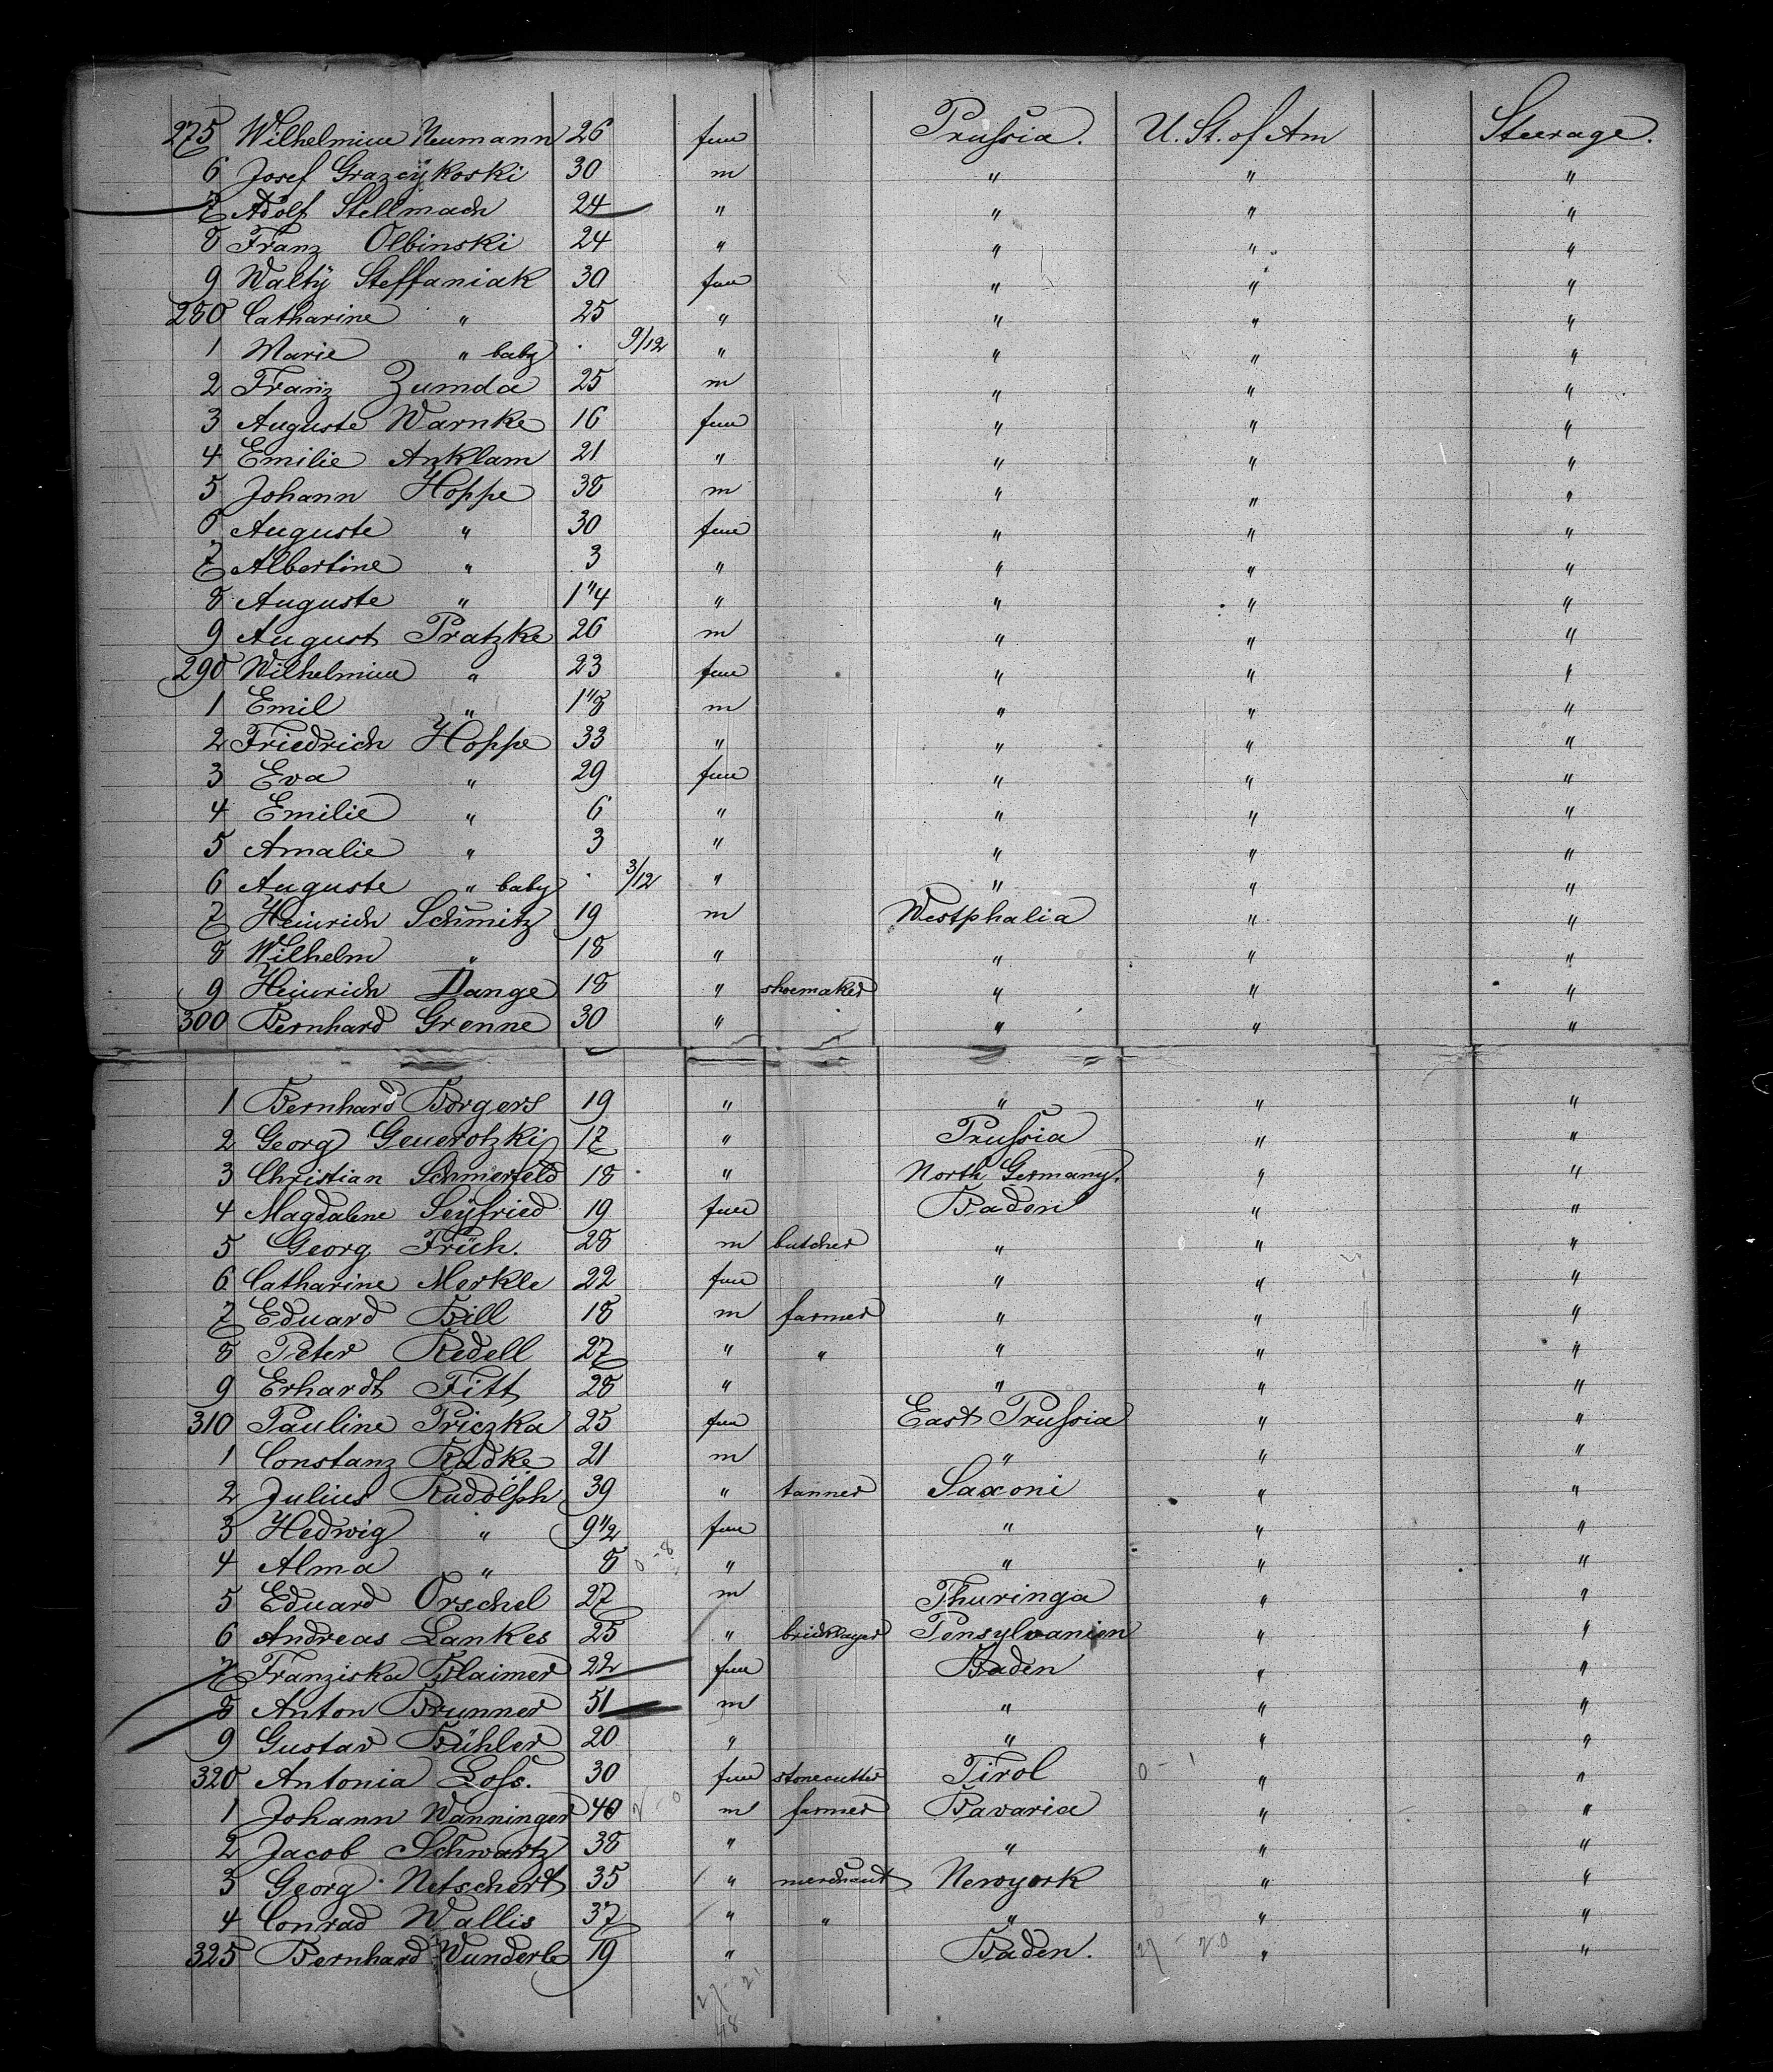 275 Wilhelmine Neumann 26 fem Prussia. U. St. of Am Steerage.
6 Josef Grazcÿkoski 30 m " " "
7 Adolf Stellmach 24 " " " "
8 Franz Olbinski 24 " " " "
9 Waltÿ Steffaniak 30 fem " " "
280 Catharine " 25 " " " "
1 Marie " baby · 9/12 " " " "
2 Franz Zumda 25 m " " "
3 Auguste Warnke 16 fem " " "
4 Emilie Anklam 21 " " " "
5 Johann Hoppe 38 m " " "
6 Auguste " 30 fem " " "
7 Albertine " 3 " " " "
8 Auguste " 1 1/4 " " " "
9 August Pratzke 26 m " " "
290 Wilhelmine " 23 fem " " "
1 Emil " 1 1/8 m " " "
2 Friedrich Hoppe 33 " " " "
3 Eva " 29 fem " " "
4 Emilie " 6 " " " "
5 Amalie " 3 " " " "
6 Auguste " baby · 3/12 " " " "
7 Heinrich Schmitz 19 m Westphalia " "
8 Wilhelm " 18 " " " "
9 Heinrich Dange 18 " shoemaker " " "
300 Bernhard Grenne 30 " " " "
1 Bernhard Borgers 19 " " " "
2 Georg Geuerotzki 17 " Prussia " "
3 Christian Schmerfeld 18 " North Germany. " "
4 Magdalene Seÿfried 19 fem Baden " "
5 Georg Früh. 28 m butcher " " "
6 Catharine Merkle 22 fem " " "
7 Eduard Bill 18 m farmer " " "
8 Peter Redell 27 " " " " "
9 Erhardt Fitt 28 " " " "
310 Pauline Priczka 25 fem East Prussia " "
1 Constanz Radke 21 m " " "
2 Julius Rudolph 39 " tanner Saxoni " "
3 Hedwig " 9 1/2 fem " " "
4 Alma " 8 0-8 " " " "
5 Eduard Orschel 27 m Thuringa " "
6 Andreas Lankes 25 " bricklayer Pensylvanien " "
7 Franziska Blaimer 22 fem Baden " "
8 Anton Brunner 51 m " " "
9 Gustav Bühler 20 " " " "
320 Antonia Loss. 30 fem stonecutter Tirol 0-1 " "
1 Johann Wanninger 40 2-0 m farmer Bavaria " "
2 Jacob Schwartz 38 " " " "
3 Georg Netschert 35 " merchant Newyork " "
4 Conrad Wallis 37 " " " " "
325 Bernhard Wunderle 19 " Baden. 27-20 " "
27-21
48